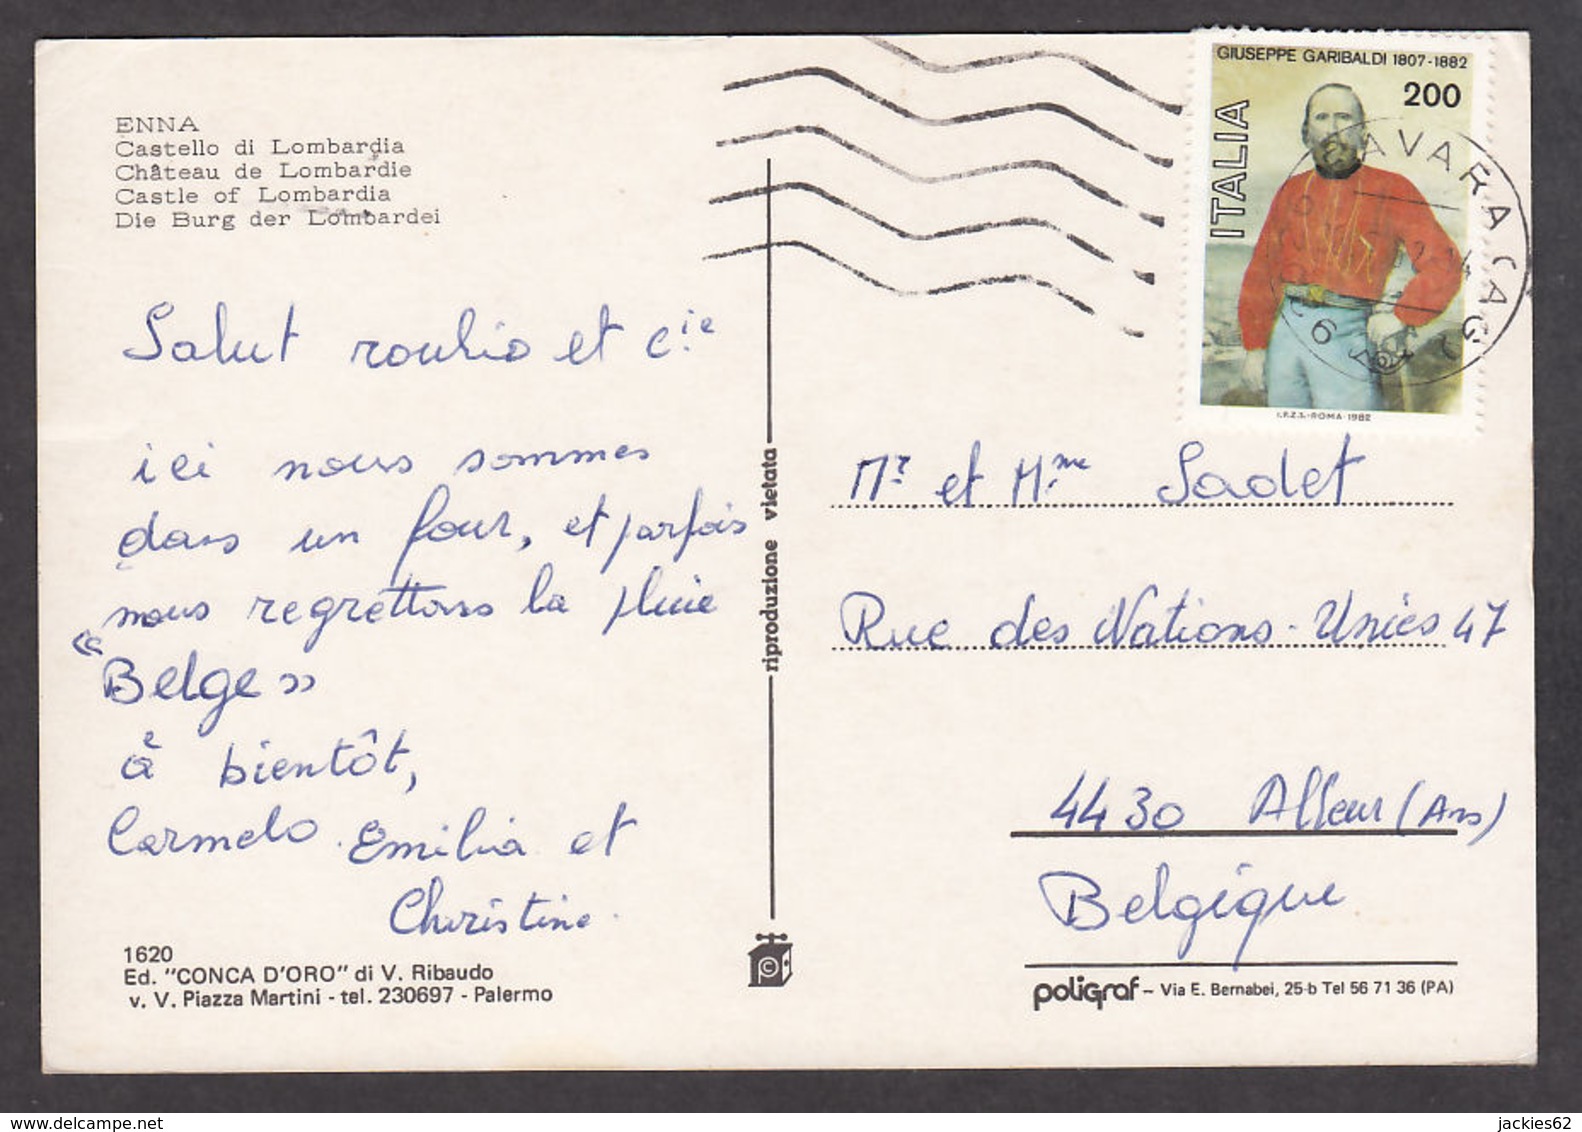 ENNA
Castello di Lombardia
Château de Lombardie
Castle of Lombardia
Die Burg der Lombardei
Salut roulio et Cie
ici nous sommes
dans un four, et parfois
nous regrettons la pluie
« Belge »
à bientôt,
Carmelo. Emilia et
Christine.
1620
Ed. "CONCA D'ORO" di V. Ribaudo
v. V. Piazza Martini - tel. 230697 - Palermo
riproduzione vietata
GIUSEPPE GARIBALDI 1807-1882
200
ITALIA
I.P.Z.S.-ROMA-1982
Mr et Mme Sadet
Rue des Nations-Unies 47
4430 Alleur (Ans)
Belgique
poligraf – Via E. Bernabei, 25-b Tel 56 71 36 (PA)
jackies62